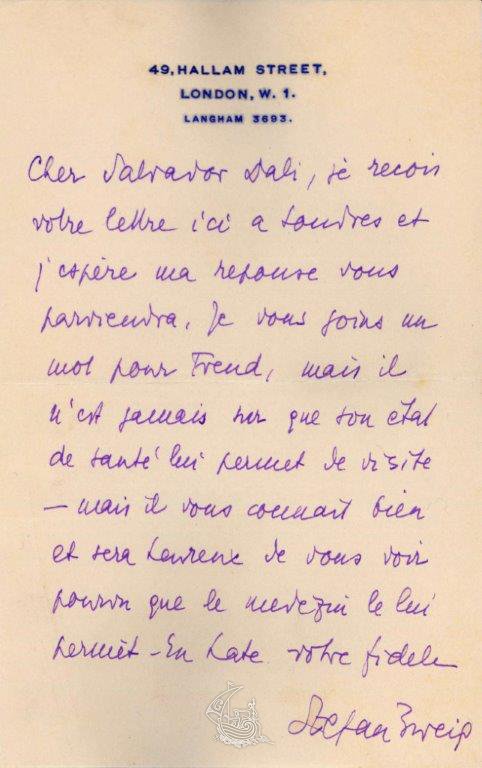 49, HALLAM STREET,
LONDON, W. 1.
LANGHAM 3693.
Cher Salvador Dali, je recois
votre lettre ici a Londres et
j'espère ma reponse vous
parviendra. Je vous joins un
mot pour Freud, mais il
n'est jamais sur que son état
de santé lui permet de visite
– mais il vous connait bien
et sera heureux de vous voir
pourvu que le medezin le lui
permet – En hate votre fidele
Stefan Zweig